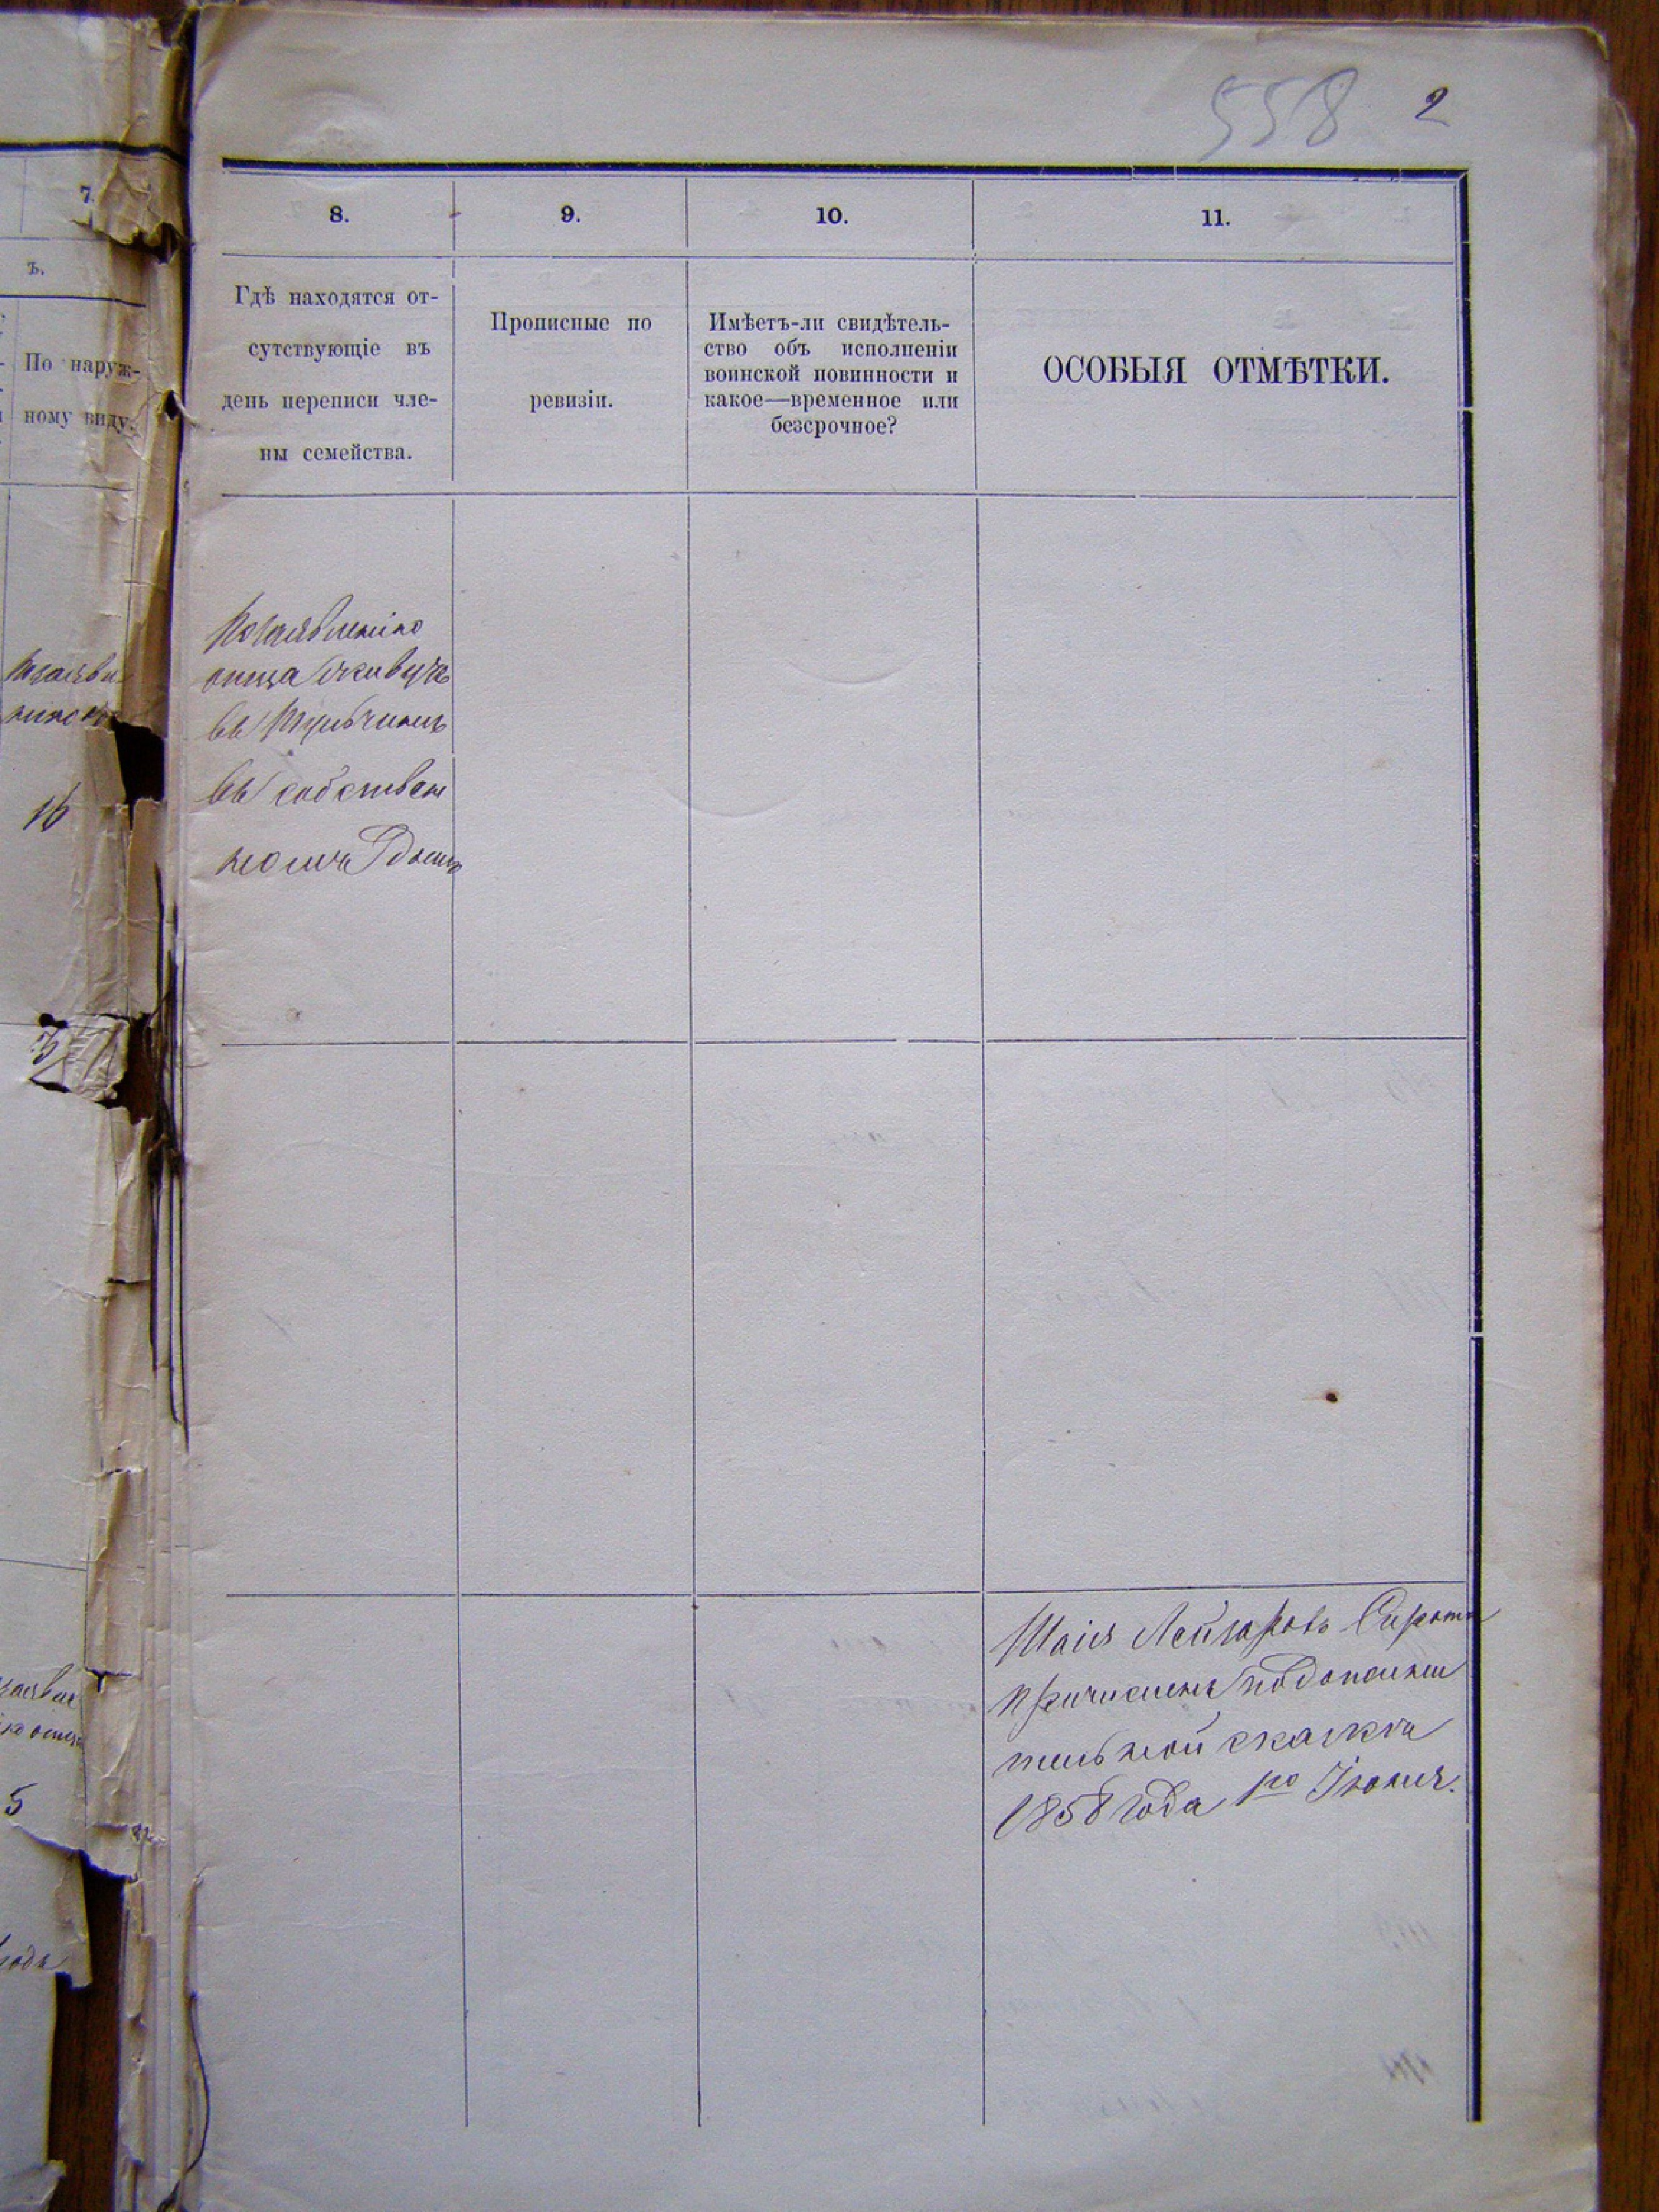 558 2
7.
ъ.
По наруж-
ному виду.
16
5
8.
9.
10.
11.
Гдѣ находятся от-
сутствующіе въ
день переписи чле-
ны семейства.
Прописные по
ревизіи.
Имѣетъ-ли свидѣтель-
ство объ исполненіи
воинской повинности и
какое—временное или
безсрочное?
ОСОБЫЯ ОТМѢТКИ.
По заявленію
отца живутъ
въ Тульчинѣ
въ собствен
номъ домѣ
Шаія Лейзоровъ Сирота
причисленъ по дополни
тельной сказкѣ
1858 года по Іюнь.